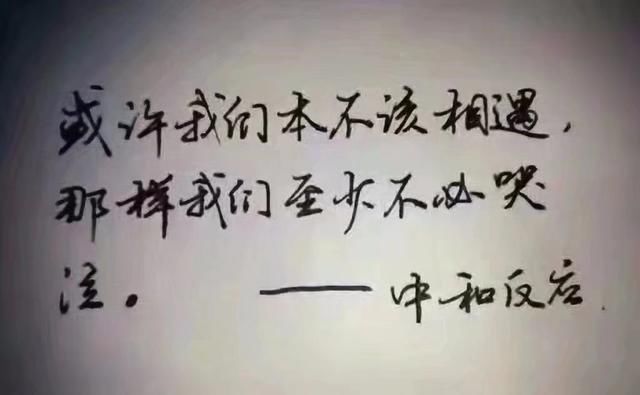 或许我们本不该相遇，
那样我们至少不必哭
泣。 ——中和反应.